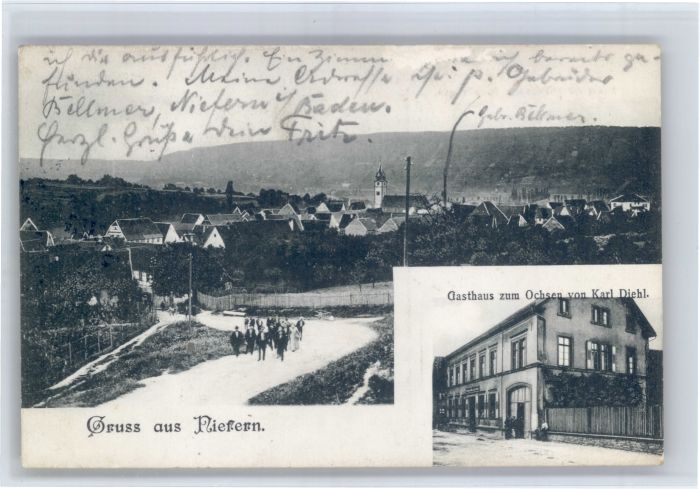 ich die ausführlich. Ein Zimmer ich bereits ge-
funden. Meine Adresse ist p. Gebrüder
Bellmer, Niefern i/ Baden.
Herzl. Grüße Dein Fritz.
Gebr. Bellmer.
Gasthaus zum Ochsen von Karl Diehl.
Gruss aus Niefern.